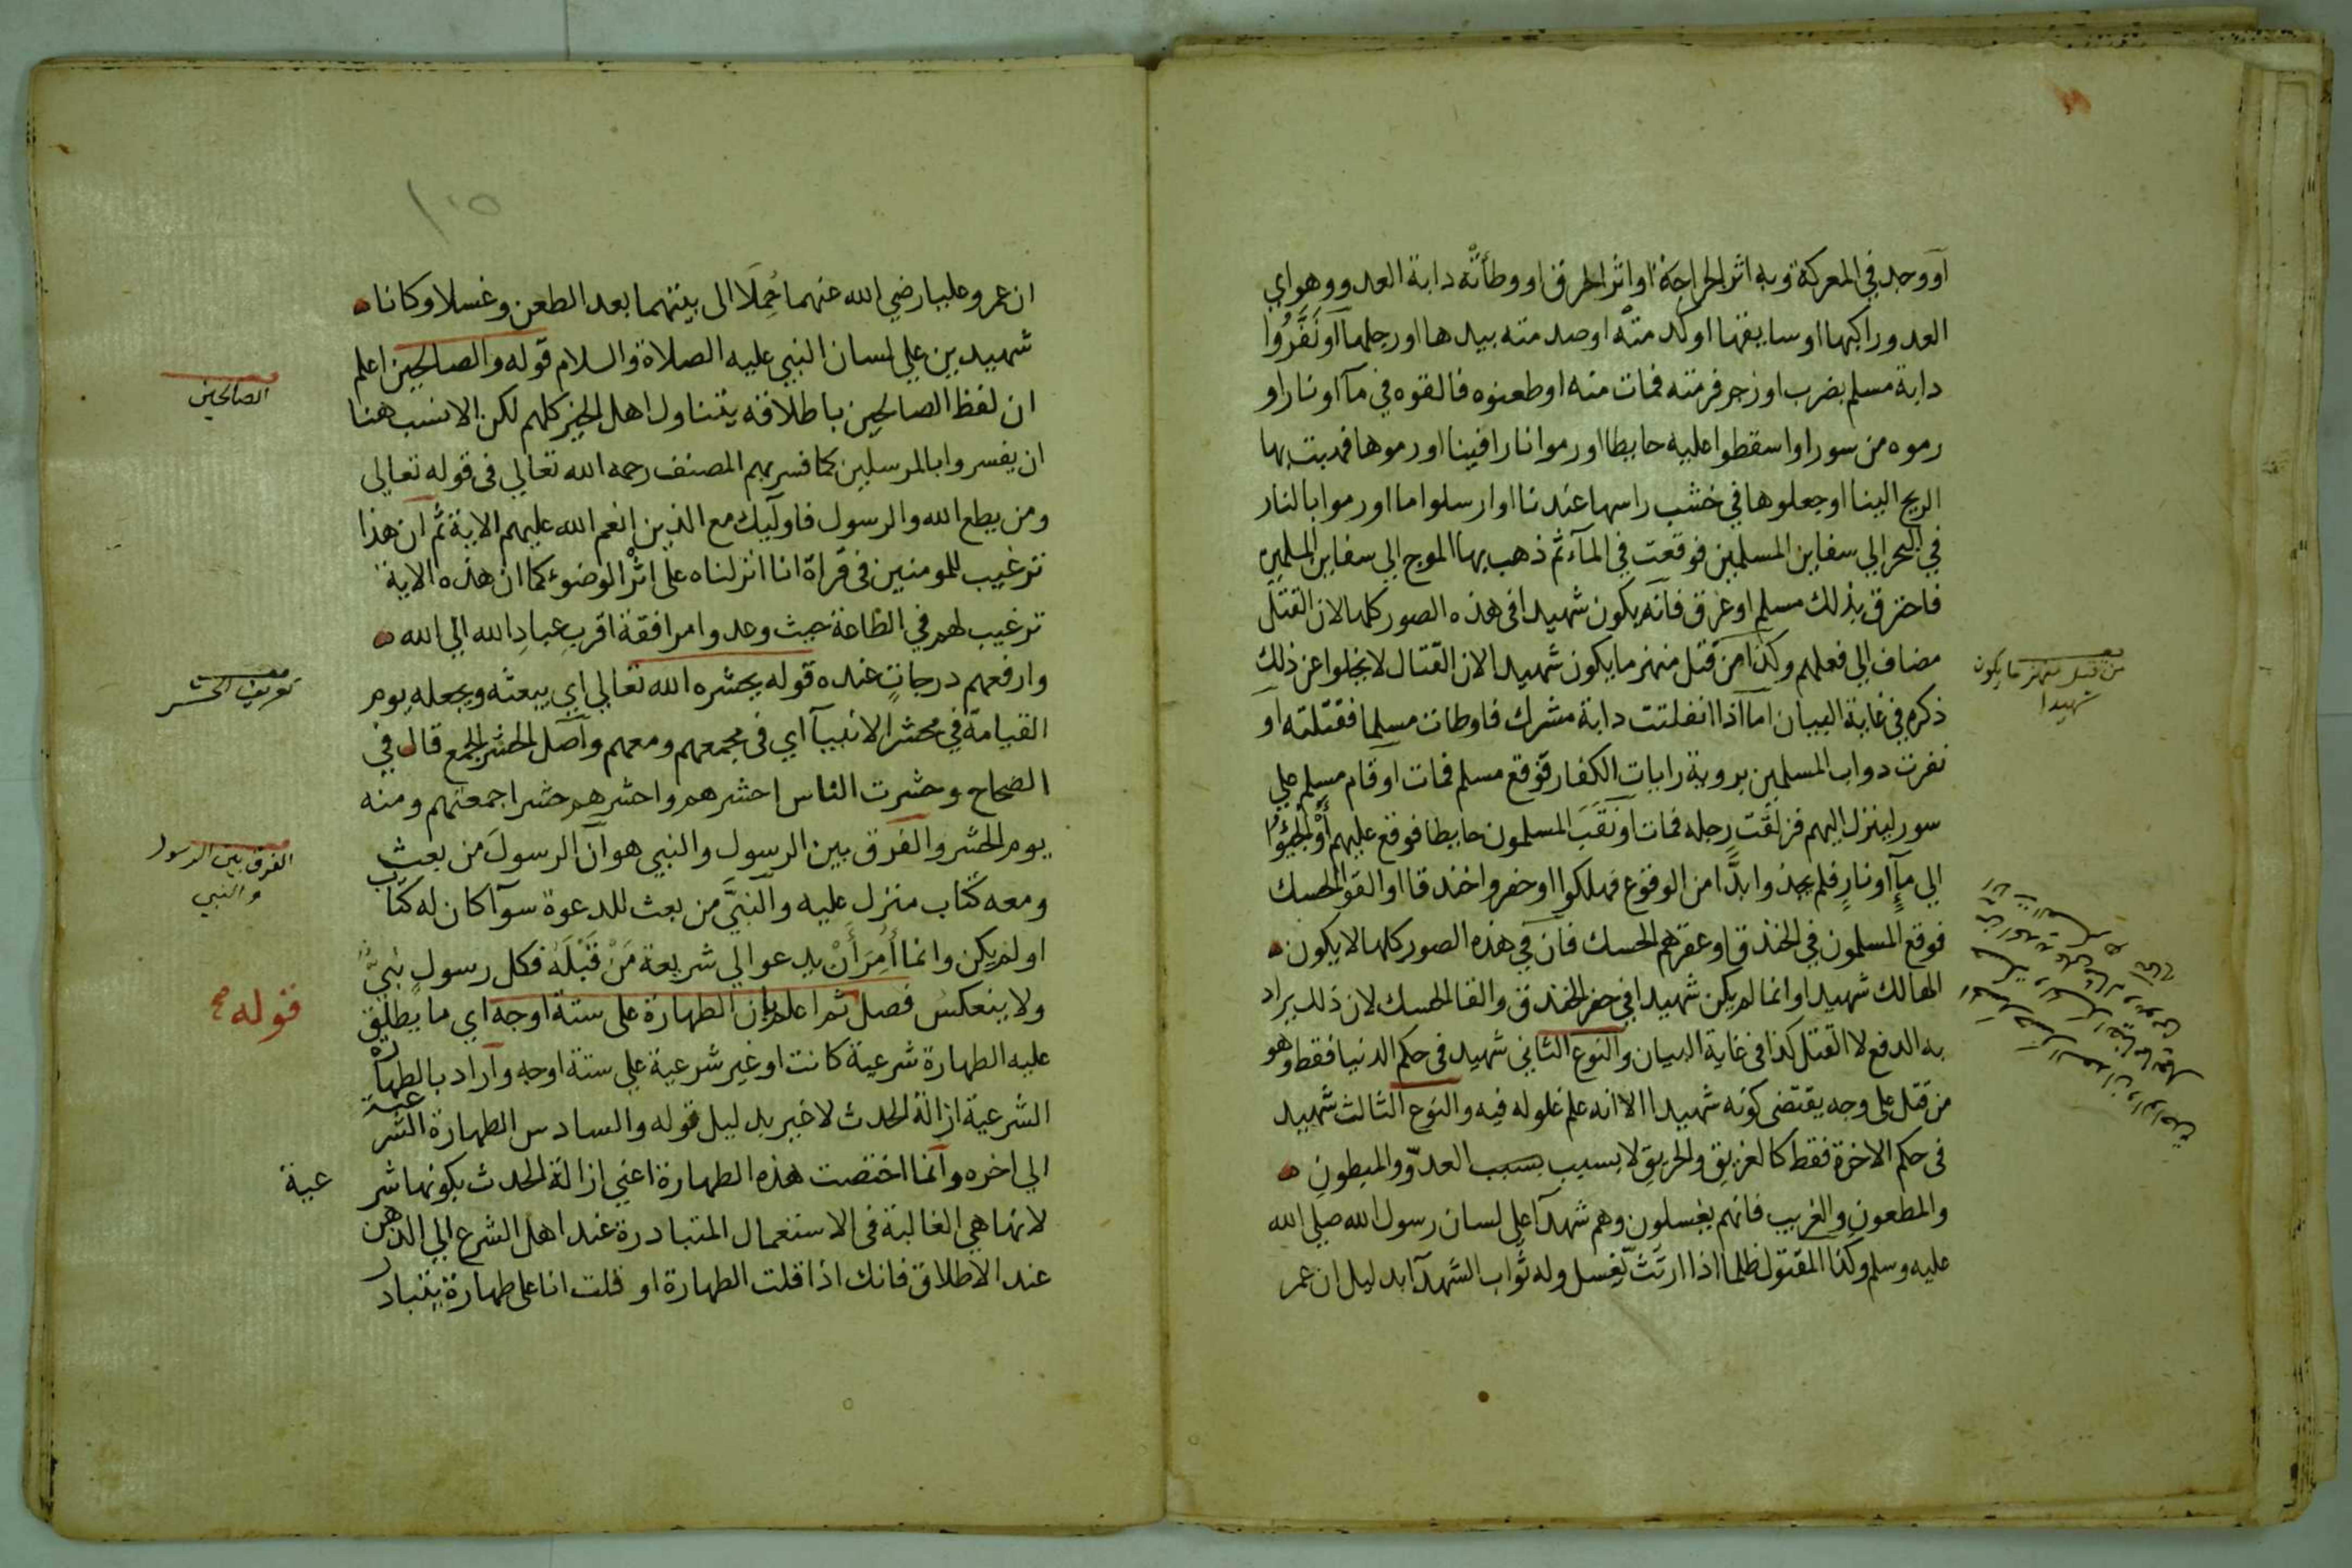 او وجد في المعركة وبه اثر الجراحة او اثر الحرق او وطأته دابة العدو وهو اي
العدو راكبها او سايقها او كدمته او صدمته بيدها او رجلها او نَفَّرُوا
دابة مسلم بضرب او زجر فرمته فمات منه او طعنوه فالقوه في مآ او نار او
رموه من سور او اسقطوا عليه حايطا او رموا نارا فينا او رموها فهبت بها
الريح الينا او جعلوها في خشب راسها عندنا او ارسلوا ما او رموا بالنار
في البحر الي سفاين المسلمين فوقعت في المآء ثم ذهب بها الموج الي سفاين المسلمين
فاحترق بذلك مسلم او غرق فانه يكون شهيدا في هذه الصور كلها لان القتل
مضاف الي فعلهم وكذا من قتل منهزما يكون شهيدا لان القتال لا يخلوا عن ذلك
ذكره في غاية البيان اما اذا انفلتت دابة مشرك فاوطات مسلما فقتلته او
نفرت دواب المسلمين بروية رايات الكفار فوقع مسلم فمات او قام مسلم علي
سور لينزل اليهم فزلقت رجله فمات او نَقَبَ المسلمون حايطا فوقع عليهم أَوْ أُلْجِؤُا
الي مآٍ او نارٍ فلم يجدوا بدًّا من الوقوع فهلكوا او حفروا خندقا او القوا الحسك
فوقع المسلمون في الخندق او عقرهم الحسك فان في هذه الصور كلها لا يكون
الهالك شهيدا وانما لم يكن شهيدا في حفر الخندق والقا الحسك لان ذلك يراد
به الدفع لا القتل كذا في غاية البيان والنوع الثاني شهيد في حكم الدنيا فقط وهو
من قتل على وجه يقتضى كونه شهيدا الا انه علم غلوله فيه والنوع الثالث شهيد
فى حكم الاخرة فقط كالغريق والحريق لا بسبب بسبب العدوّ والمبطونِ
والمطعونِ والغريب فانهم يغسلون وهم شهدآ علي لسان رسول الله صلي الله
عليه وسلم وكذا المقتول ظلما اذا ارتثّ يغسل وله ثواب الشهدآ بدليل ان عمر
من قتل منهزما يكون
شهيدا
ان عمر وعليا رضي الله عنهما حُمِلَا الى بيتهما بعد الطعن وغسلا وكانا
شهيدين علي لسان النبي عليه الصلاة والسلام قوله والصالحين اعلم
ان لفظ الصالحين باطلاقه يتناول اهل الخير كلهم لكن الانسب هنا
ان يفسروا بالمرسلين كما فسر بهم المصنف رحمه الله تعالي فى قوله تعالي
ومن يطع الله والرسول فاوليك مع الذين انعم الله عليهم الاية ثم ان هذا
ترغيب للمومنين فى قراة انا انزلناه على اثر الوضوء كما ان هذه الاية
ترغيب لهم في الطاعة حيث وعدوا مرافقة اقرب عبادِ الله الي الله
وارفعهم درجاتٍ عنده قوله يحشره الله تعالي اي يبعثه ويجعله يوم
القيامة في محشر الانبيآ اي فى مجمعهم ومعهم واصل الحشر الجمع قال في
الصحاح وحشرت الناس احشرهم واحشرهم حشرا جمعتهم ومنه
يوم الحشر والفرق بين الرسول والنبي هو ان الرسولَ من بعث
ومعه كتاب منزل عليه والنبيَّ من بعث للدعوة سوآ كان له كتاب
او لم يكن وانما أُمِرَ أَنْ يدعو الي شريعة مَنْ قَبْلَهُ فكل رسولٍ نبيٌّ
ولا ينعكس فصل ثم اعلم بان الطهارة على ستة اوجه اي ما يطلق
عليه الطهارة شرعية كانت او غير شرعية علي ستة اوجه واراد بالطهارة
الشرعية ازالة الحدث لا غير بدليل قوله والسادس الطهارة الشرعية
الي اخره وانما اختصت هذه الطهارة اعني ازالة الحدث بكونها شر عية
لانها هي الغالبة فى الاستعمال المتبادرة عند اهل الشرع الي الذهن
عند الاطلاق فانك اذا قلت الطهارة او قلت انا على طهارة يتبادر
الصالحين
تعريف الحشر
الفرق بين الرسول
والنبي
قوله صح
١٠٥